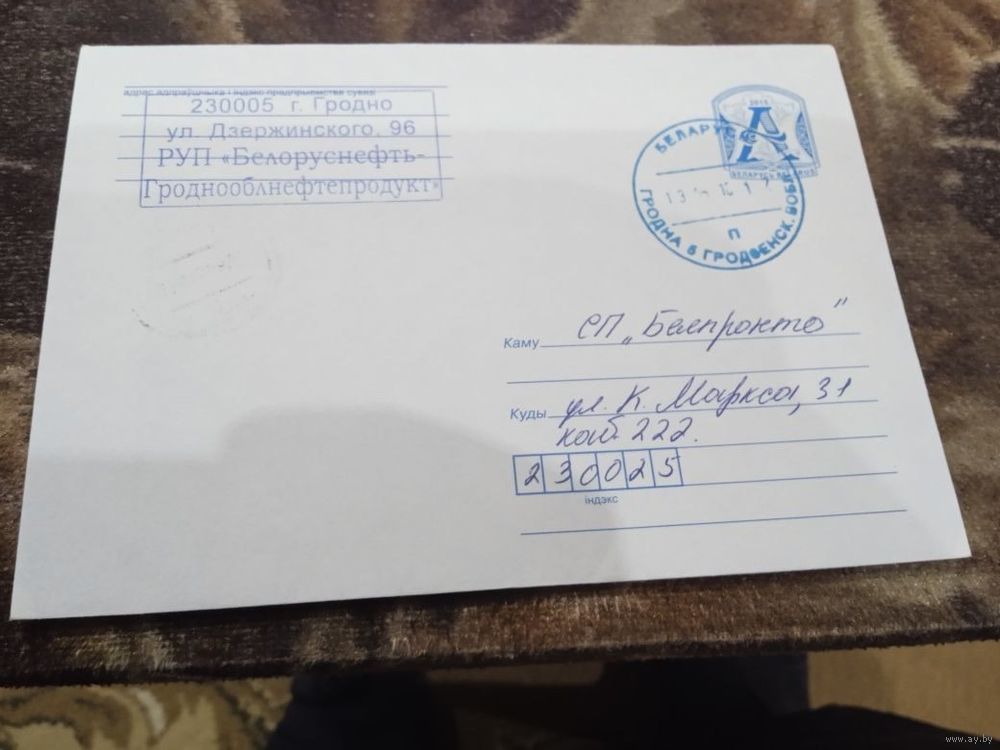 адрас адпраўшчыка і індэкс прадпрыемства сувязі
230005 г. Гродно
ул. Дзержинского, 96
РУП «Белоруснефть-
Гроднооблнефтепродукт»
2015
А
БЕЛАРУСЬ BELARUS
БЕЛАРУСЬ
П
ГРОДНА 5 ГРОДЗЕНСК. ВОБЛ.
Каму СП „Белпронто"
Куды ул. К. Маркса, 31
каб. 222.
230025
індэкс
www.ay.by